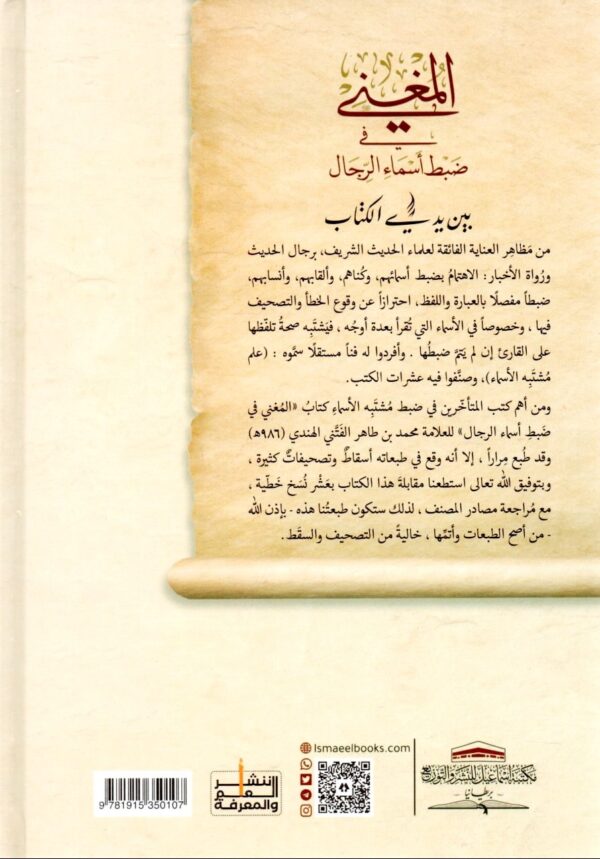 المُغْنِي
في
ضَبْط أَسْمَاءِ الرِّجَال
بين يدي الكتاب
من مَظاهِر العناية الفائقة لعلماء الحديث الشريف، برجال الحديث
ورُواة الأخبار: الاهتمامُ بضبط أسمائهم، وكُناهم، وألقابهم، وأنسابهم،
ضبطاً مفصلًا بالعبارة واللفظ، احترازاً عن وقوع الخطأ والتصحيف
فيها، وخصوصاً في الأسماء التي تُقرأ بعدة أوجُه، فيَشتَبِه صحةُ تلفّظها
على القارئ إن لم يَتِمَّ ضبطُها. وأفردوا له فناً مستقلًا سمَّوه: (علم
مُشتَبِه الأسماء)، وصنَّفوا فيه عشرات الكتب.
ومن أهم كتب المتأخرين في ضبط مُشتَبِه الأسماءِ كتابُ «المُغني في
ضَبطِ أسماء الرجال» للعلامة محمد بن طاهر الفَتَّني الهندي (٩٨٦ه)
وقد طُبع مِراراً، إلا أنه وقع في طبعاته أسقاطٌ وتصحيفاتٌ كثيرة،
وبتوفيق الله تعالى استطعنا مقابلةَ هذا الكتاب بعَشْر نُسَخ خَطّية،
مع مُراجعة مصادر المصنف، لذلك ستكون طبعتُنا هذه - بإذن الله
- من أصح الطبعات وأتمِّها، خاليةً من التصحيف والسقَط.
Ismaeelbooks.com
مكتبة إسماعيل للنشر والتوزيع
- بريطانيا -
ننشر
العلم
والمعرفة
9 781915 350107